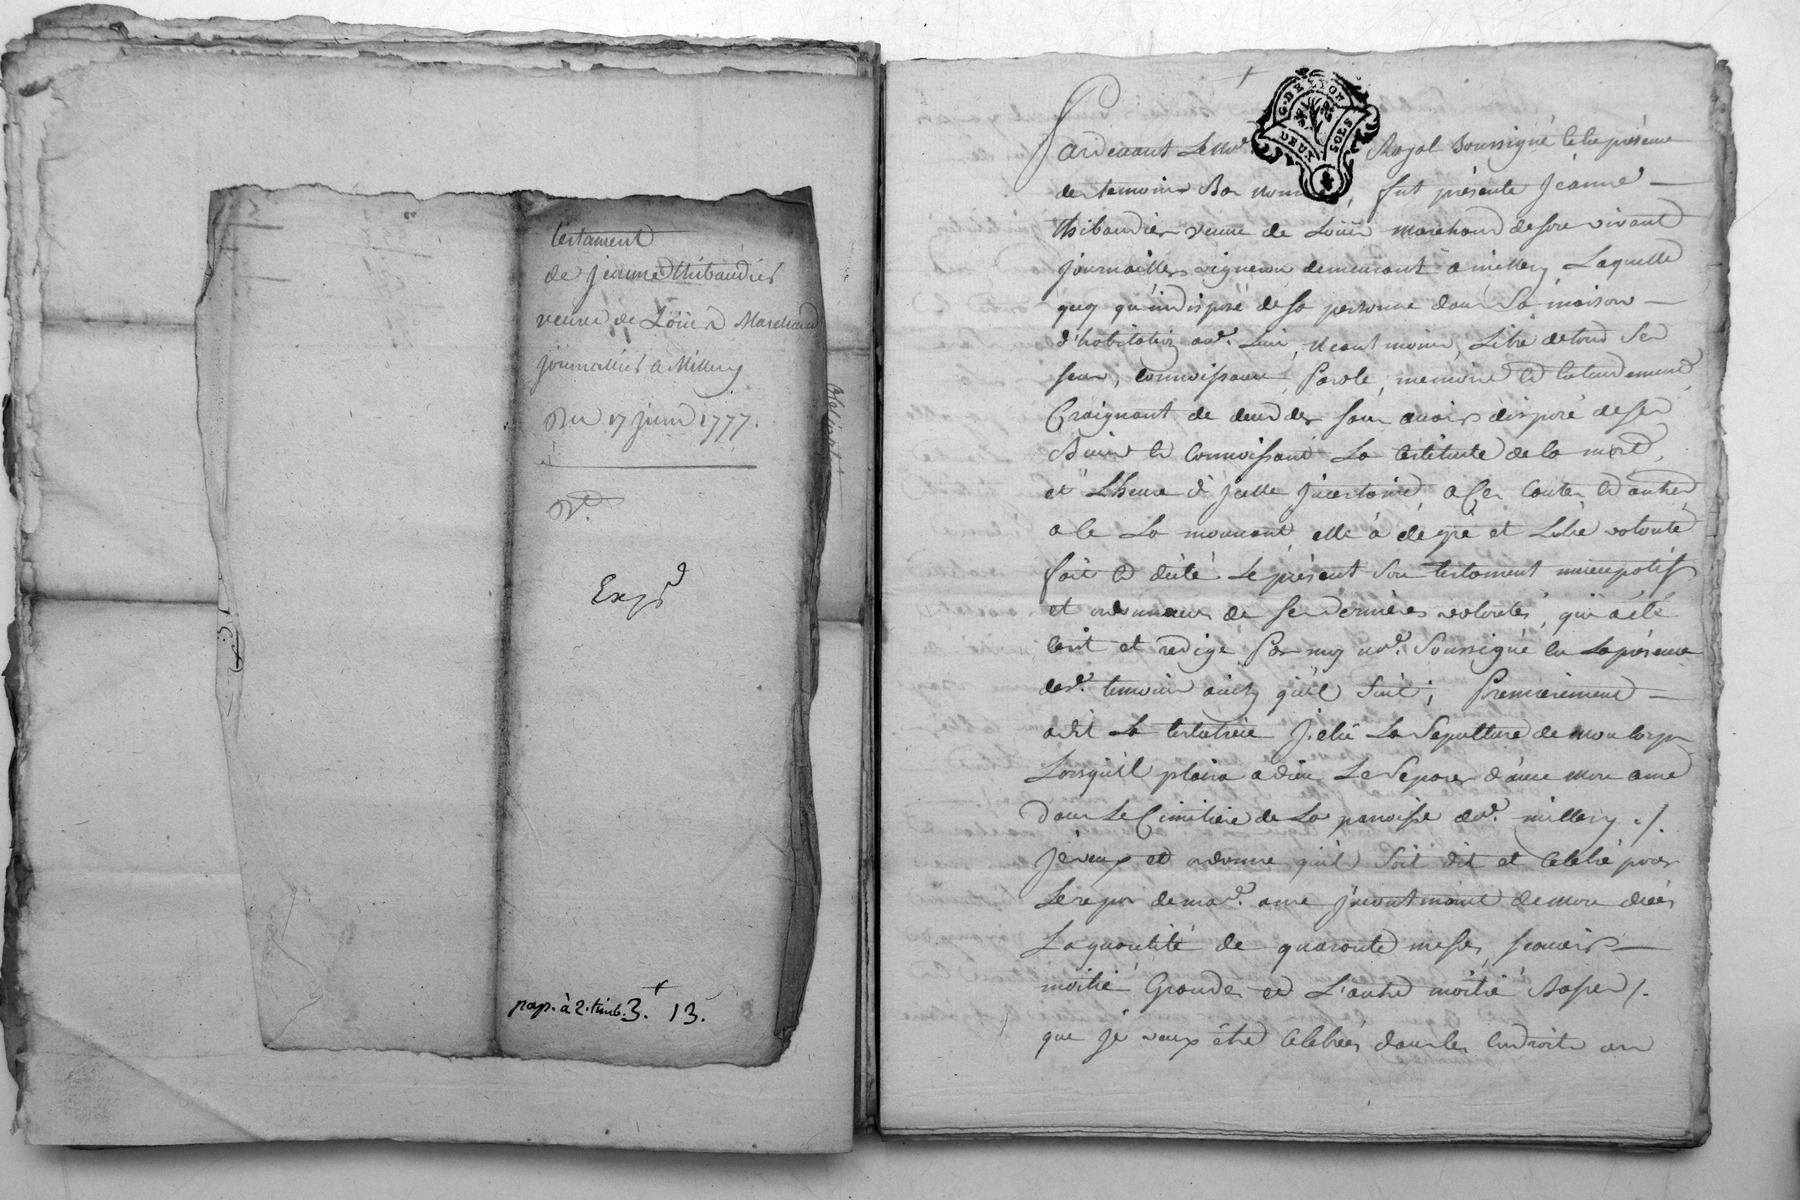 testament
de jeanne thibaudier
veuve de Loüis Marchand
journallier a Millery
Du 17 juin 1777.
Expd
pap. à 2. timb. 3. 13.
G. DE LYON
DEUX SOLS
Pardevant Le Nore. Royal soussigné et en présence
des temoins Bas nommés, fut présente jéanne
thibaudier veuve de Loüis marchand de son vivant
journaillier vigneron demeurant à millery Laquelle
quoy qu'indisposé de sa personne dans Sa maison
d'habitation aud. Lieu, Neant moins, Libre de tous Ses
sens, connoissance, Parole, memoire et Entendement
Craignant de deceder sans avoir disposé de ses
Biens et connoissant La certitude de la mort,
et L'heure d'jcelle jncertaine, a Ces causes et autres
a ce La mouvant, elle à de gré et Libre volonté
fait et dicté Le présent Son testament nuncupatif
et ordonnance de Ses dernières volontés, qui a été
écrit et redigé Par moy no.e Soussigné en La présence
desd. temoins ainsy qu'il Suit; Premierement
a dit La testatrice j'elis La Sepulture de mon corps
Lorsqu'il plaira a dieu Le Separer d'avec mon ame
Dans Le Cimetiere de La paroisse dud. millery ./.
Je veux et ordonne qu'il Soit dit et Celebré pour
Le repos de mad. ame jncontinent de mon décès
La quantité de quarante messes, scavoir
moitié Grandes et L'autre moitié Basses /.
que je veux être Celebrées dans les Endroits ou